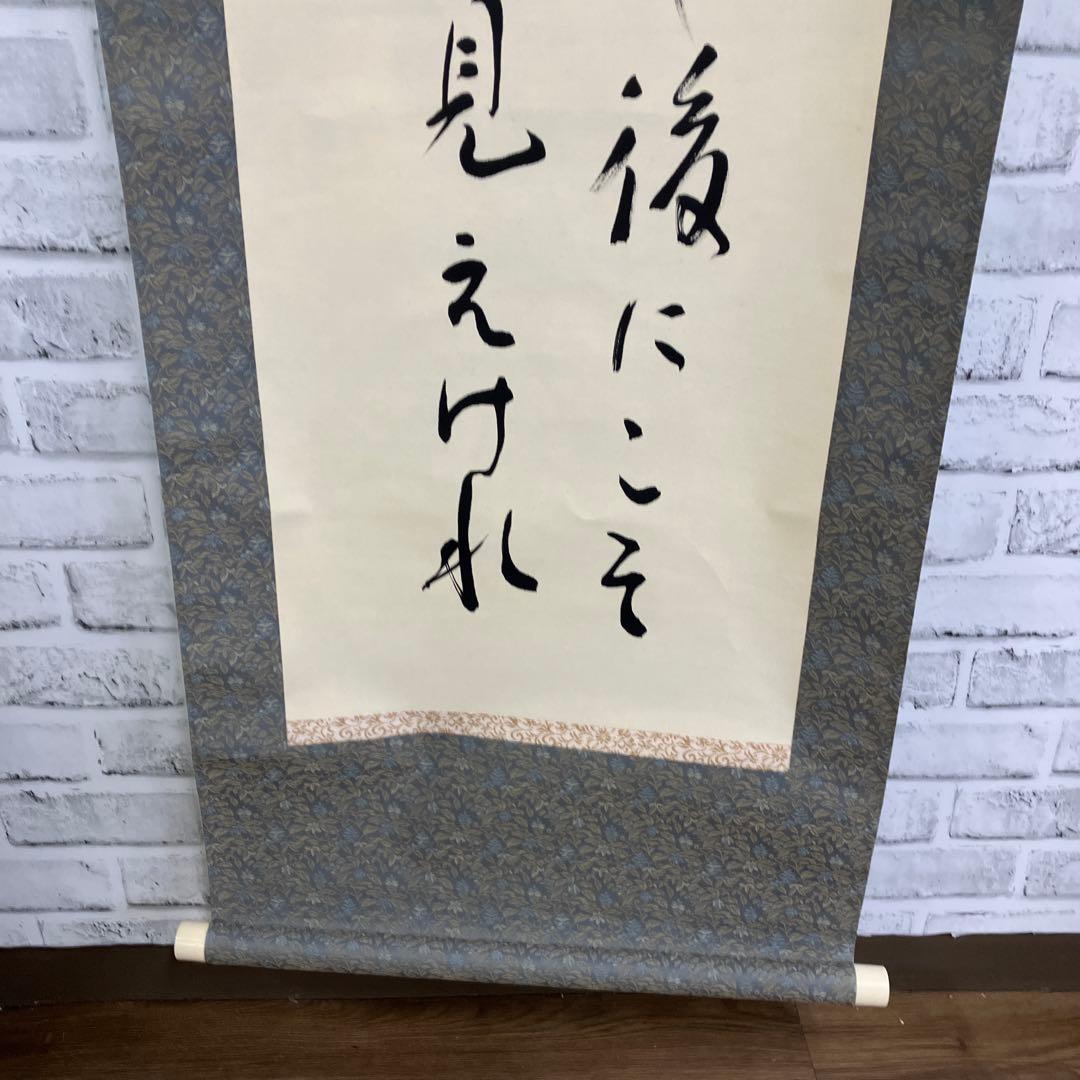 後にこそ
見えけれ